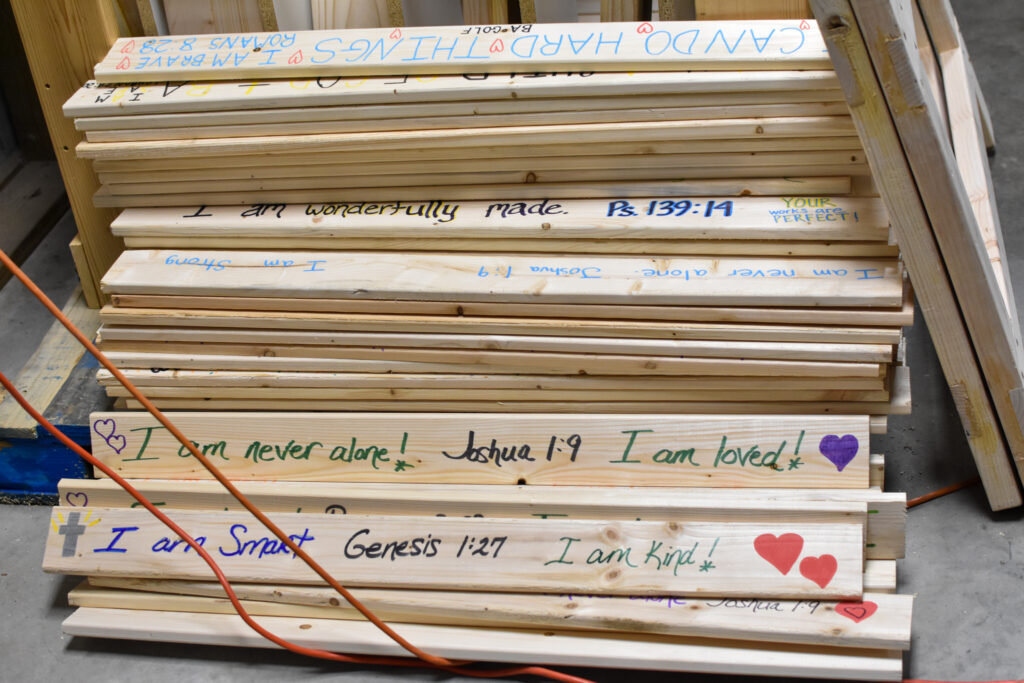 CAN DO HARD THINGS I AM BRAVE
ROMANS 8:28
I am wonderfully made. Ps. 139:14
YOUR
works are
PERFECT!
I am never alone. Joshua 1:9 I am Strong
I am never alone! Joshua 1:9 I am loved!
I am Smart Genesis 1:27 I am Kind!
never alone Joshua 1:9